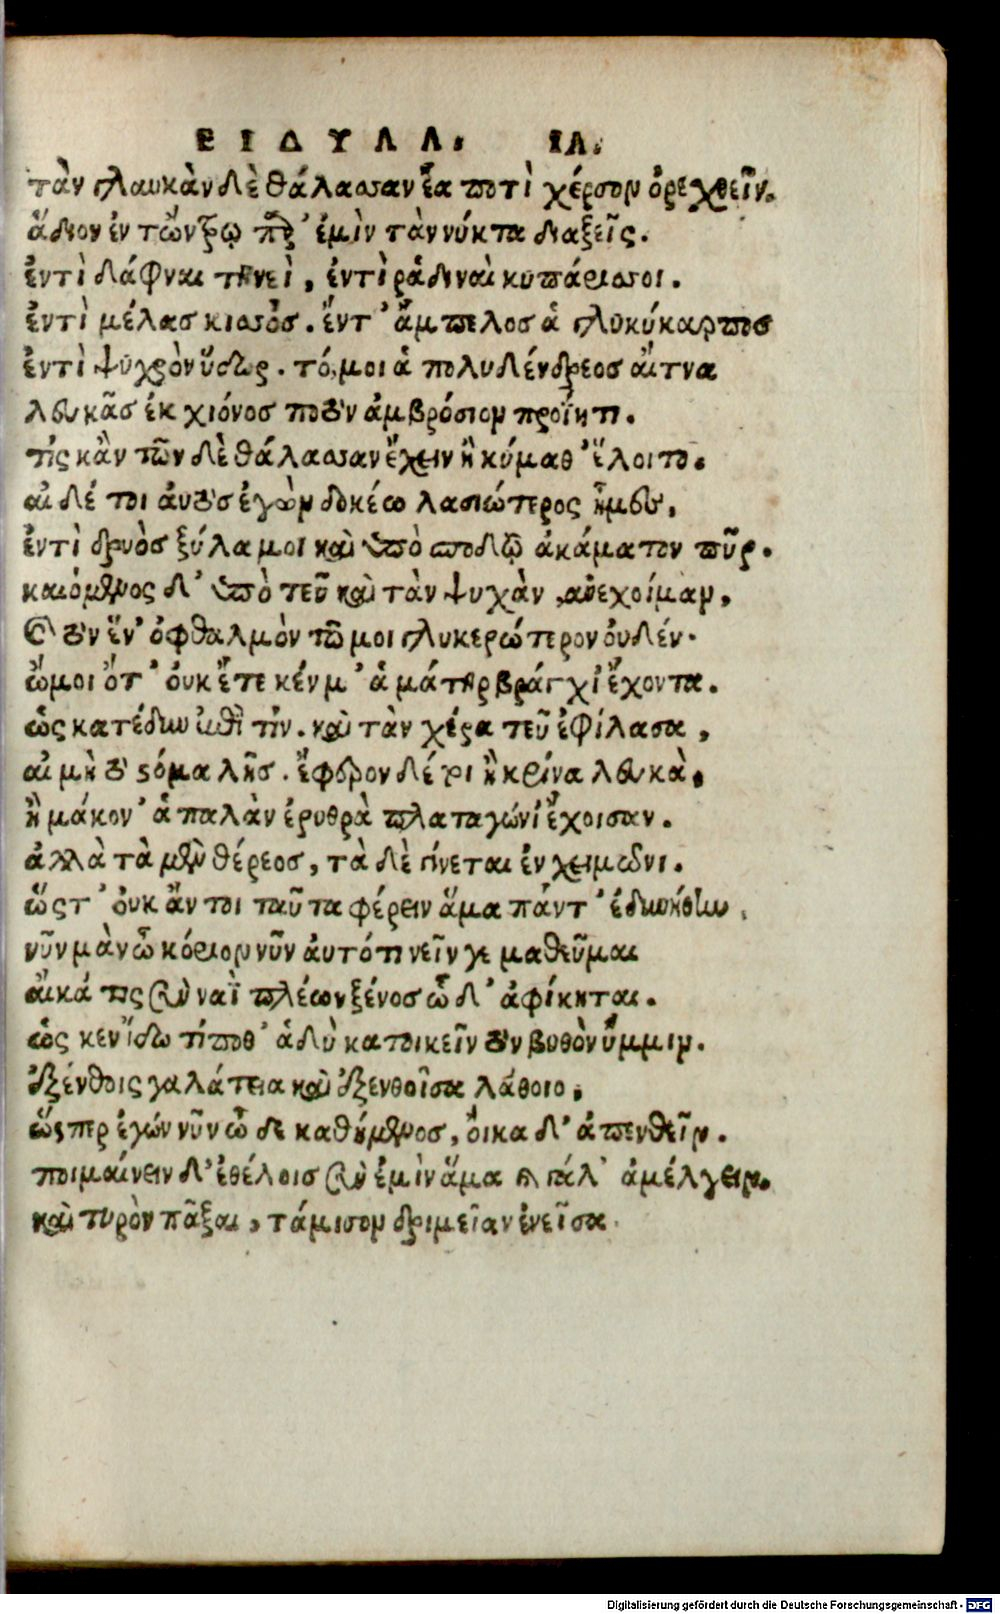 ΕΙΔΥΛΛ. ΙΑ.
τὰν γλαυκὰν δὲ θάλασσαν ἔα ποτὶ χέρσον ὀρεχθεῖν.
ἅδιον ἐν τὤντρῳ παρ’ ἐμὶν τὰν νύκτα διαξεῖς.
ἐντὶ δάφναι τηνεὶ, ἐντὶ ῥάδιναὶ κυπάρισσοι.
ἐντὶ μέλας κισσὸς. ἔντ’ ἄμπελος ἁ γλυκύκαρπος
ἐντὶ ψυχρὸν ὕδωρ. τό,μοι ἁ πολυδένδρεος αἴτνα
λευκᾶς ἐκ χιόνος ποτὸν ἀμβρόσιον προΐητι.
τίς κἂν τῶν δὲ θάλασσαν ἔχειν ἢ κύμαθ’ ἕλοιτο.
αἰ δέ τοι ἀυτὸς ἐγὼν δοκέω λασιώτερος ἦμεν,
ἐντὶ δρυὸς ξύλα μοι καὶ ὑπὸ σποδῷ ἀκάματον πῦρ.
καιόμενος δ’ ὑπὸ τεῦ καὶ τὰν ψυχὰν ,ανεχοίμαν,
καὶ τὸν ἕν’ ὀφθαλμὸν τῶ μοι γλυκερώτερον ὀυδέν.
ὤμοι ὅτ’ ὀυκ ἔτεκέν μ’ ἁ μάτηρ βράγχι’ ἔχοντα.
ὡς κατέδυν ποτὶ τίν. καὶ τὰν χέρα τεῦ ἐφίλασα,
αἰ μὴ τὸ στόμα λῇς. ἔφερον δέ τοι ἢ κρίνα λευκὰ,
ἢ μάκον’ ἁπαλὰν ἐρυθρὰ πλαταγώνι’ ἔχοισαν.
ἀλλὰ τὰ μὲν θέρεος, τὰ δὲ γίνεται ἐν χειμῶνι.
ὥστ’ ὀυκ ἄν τοι ταῦτα φέρειν ἅμα πάντ’ ἐδυνήθην,
νῦν μὰν ὦ κόριον νῦν ἀυτότι νεῖν γε μαθεῦμαι
αἴκά τις σὺν ναῒ πλέων ξένος ὧδ’ ἀφίκηται.
ὡς κεν ἴδω τίποθ’ ἁδὺ κατοικεῖν τὸν βυθὸν ὔμμιν.
ἐξένθοις γαλάτεια καὶ ἐξενθοῖσα λάθοιο,
ὥσπερ ἐγών νῦν ὧδε καθήμενος, οἴκαδ’ ἀπενθεῖν.
ποιμαίνειν δ’ ἐθέλοις σὺν ἐμὶν ἅμα καὶ γάλ’ ἀμέλγειν.
καὶ τυρὸν πᾶξαι, τάμισον δριμεῖαν ἐνεῖσα.
Digitalisierung gefördert durch die Deutsche Forschungsgemeinschaft - DFG